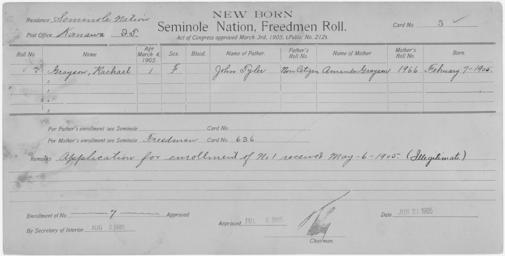 NEW BORN
Residence Seminole Nation
Seminole Nation, Freedmen Roll.
Card No. 5 ✓
Post Office I.T.
Act of Congress approved March 3rd, 1905, (Public No. 212).
Roll No. Name Age March 4 1905 Sex. Blood. Name of Father. Father's Roll No. Name of Mother Mother's Roll No. Born.
Grayson, Rachael 1 F John Tyler Non Citizen Amanda Grayson 1966 February 7-1905.
For Father's enrollment see Seminole Card No.
For Mother's enrollment see Seminole Freedman Card No. 636
Remarks Application for enrollment of No1 received May-6-1905 (Illegitimate)
Enrollment of No. Approved
Approved 1905
Date 1905
By Secretary of Interior AUG 1905
Chairman.